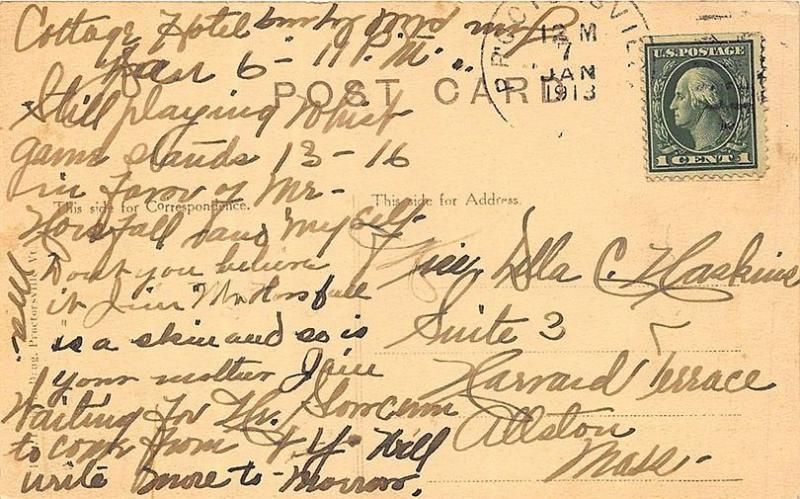 Cottage Hotel
Jan 6 - 11 P.M.
POST CARD
PROCTORSVILLE
12 M
7
JAN
1913
U.S. POSTAGE
1 CENT 1
Still playing Whist
game stands 13-16
in favor of Mr-
This side for Correspondence.
This side for Address.
Horsfall and myself-
Dont you believe
it Mr Horsfall
is a skin and so is
your mother
Waiting for Mr.
to come from N.Y. Will
write more to-morrow.
Della C. Haskins
Suite 3
Harvard Terrace
Allston
Mass-
Proctorsville, Vt.